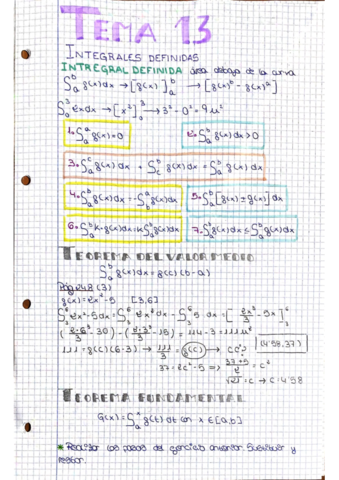 TEMA 13
INTEGRALES DEFINIDAS
INTREGRAL DEFINIDA área debajo de la curva
∫ₐᵇ f(x)dx → [f(x)]ₐᵇ → [f(x)ᵇ - f(x)ᵃ]
∫₀³ 2x dx → [x²]₀³ → 3² - 0² = 9 u²
1. ∫ₐᵃ f(x) = 0   2. ∫ₐᵇ f(x)dx > 0
3. ∫ₐᶜ f(x)dx + ∫꜀ᵇ f(x)dx = ∫ₐᵇ f(x)dx
4. ∫ₐᵇ f(x)dx = -∫ᵇₐ f(x)dx   5. ∫ₐᵇ [f(x) ± g(x)] dx
6. ∫ₐᵇ K·f(x)dx = K∫ₐᵇ f(x)dx   7. ∫ₐᵇ f(x)dx ≤ ∫ₐᵇ g(x)dx
TEOREMA DEL VALOR MEDIO
∫ₐᵇ f(x)dx = f(c)(b-a)
f(x) = 2x²-5 [3,6]
∫₃⁶ 2x²-5dx = ∫₃⁶ 2x² dx - ∫₃⁶ 5 dx = [2x³/3 - 5x]₃⁶
(2·6³/3 - 30) - (2·3³/3 - 15) = 114 - 3 = 111 u²
111 = f(c)(6-3) → 111/3 = f(c) → (4'58, 37)
37 = 2c²-5 ⇒ (37+5)/2 = c²
√21 = c → c = 4'58
TEOREMA FUNDAMENTAL
G(x) = ∫ₐˣ f(t)dt con x ∈ [a,b]
* Realizar los pasos del ejercicio anterior. Sustituir y
restar.